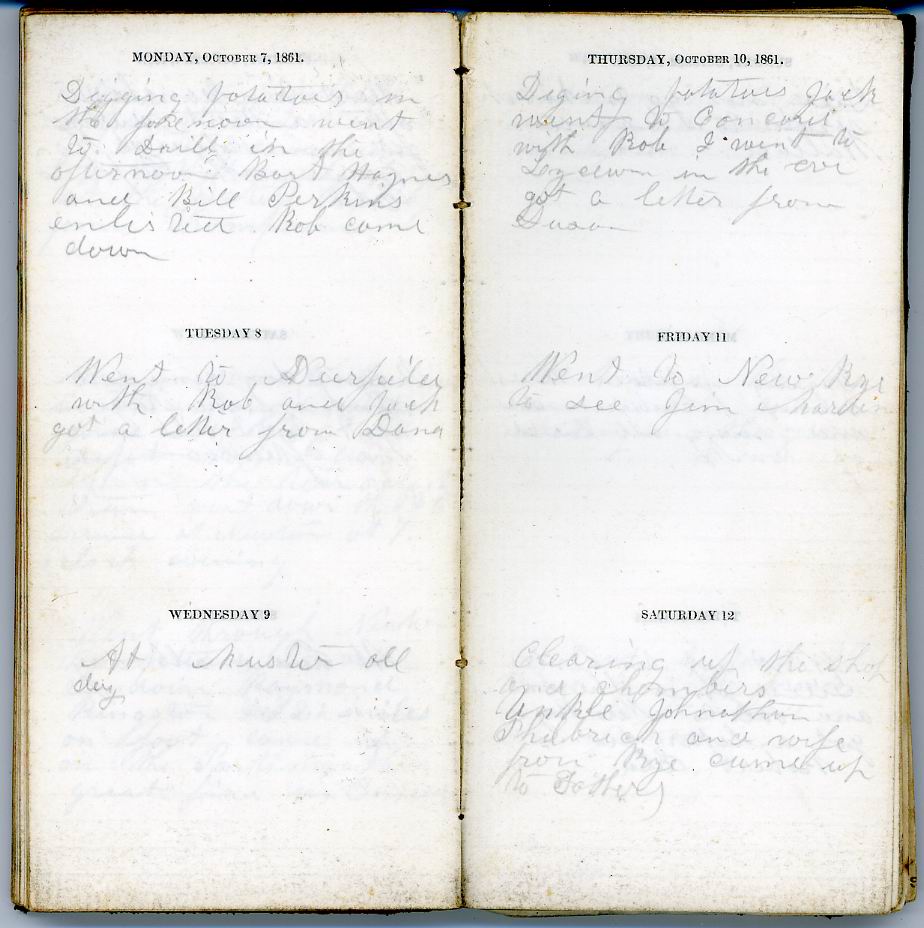 MONDAY, OCTOBER 7, 1861.
Digging potatoes in
the forenoon went
to Drill in the
afternoon Bart Haynes
and Bill Perkins
enlisted Rob came
down
TUESDAY 8
Went to Deerfield
with Rob and Jack
got a letter from Dana
WEDNESDAY 9
At Muster all
day
THURSDAY, OCTOBER 10, 1861.
Diging potatoes Jack
went to Concord
with Rob I went to
Lyceum in the eve
got a letter from
Susan
FRIDAY 11
Went to New Rye
to see Jim
SATURDAY 12
Clearing up the shop
and chambers
Unkle Johnathan
Philbrick and wife
from Rye came up
to Fathers